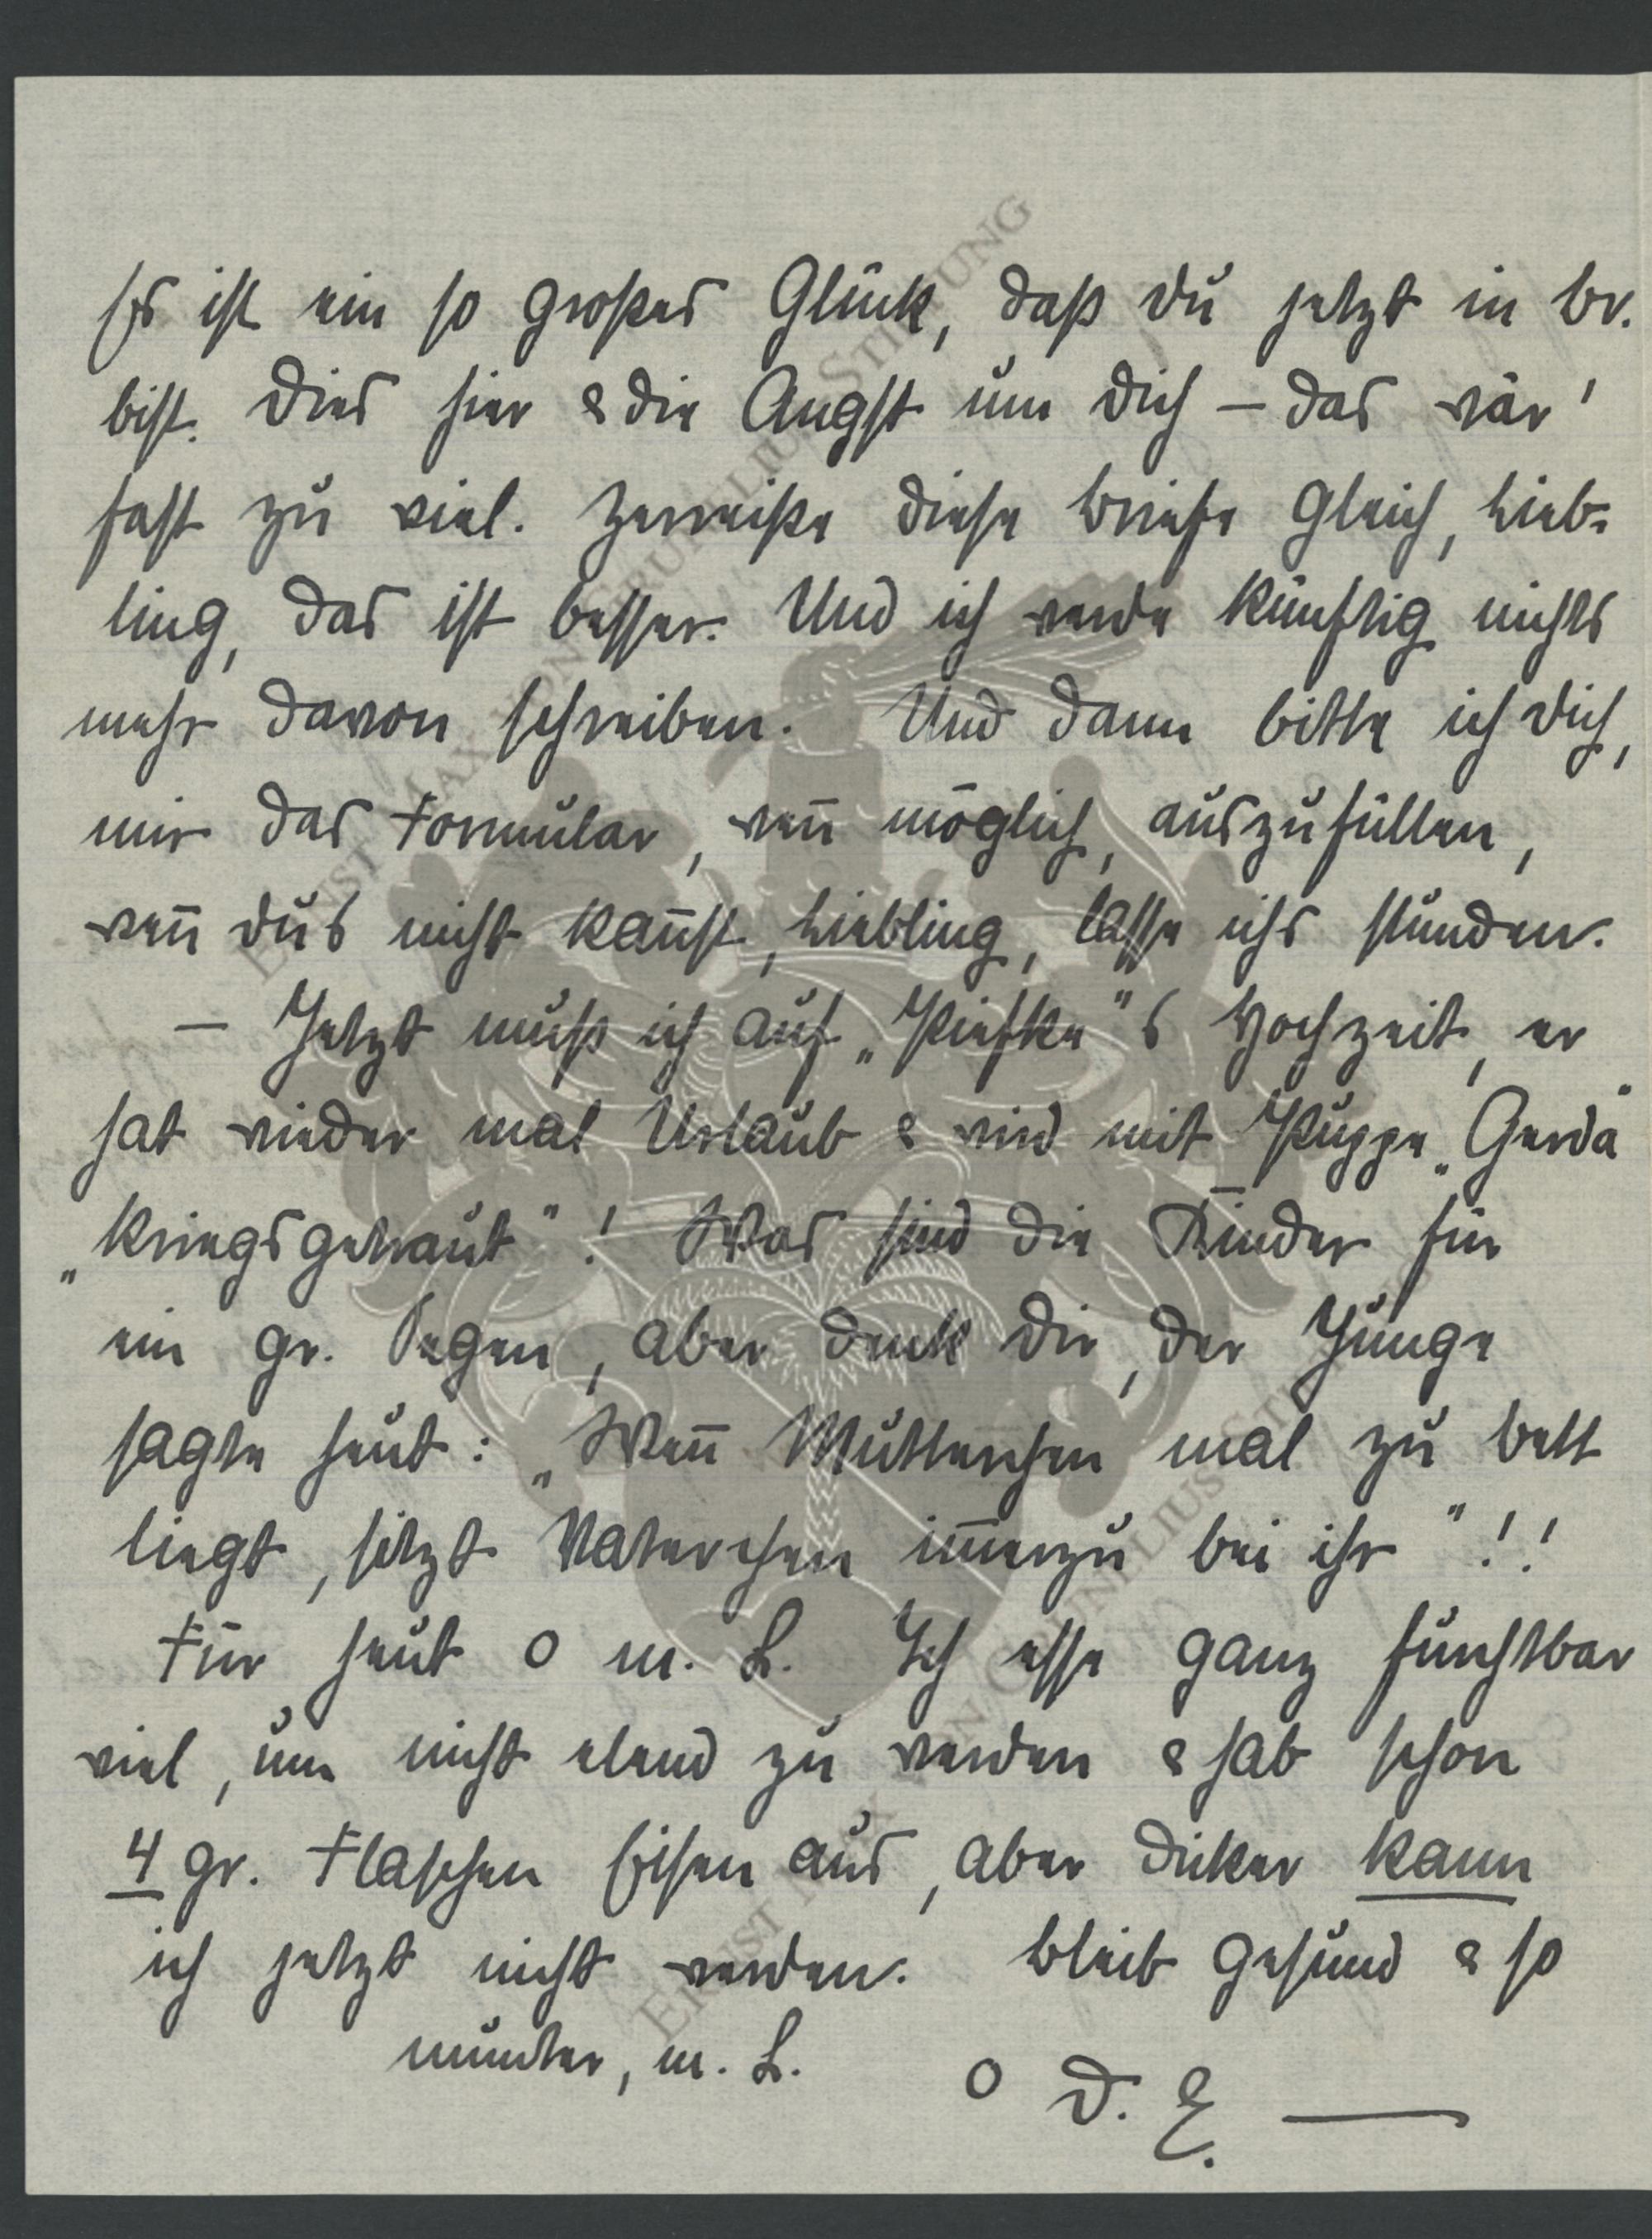 Es ist ein so großes Glück, daß Du jetzt in Br.
bist. Dies hier & die Angst um Dich – das wär'
fast zu viel. Zerreiße diese Briefe gleich, Lieb-
ling, das ist besser. Und ich werde künftig nichts
mehr davon schreiben. Und dann bitte ich Dich,
mir das Formular, wen̄ möglich, auszufüllen,
wen̄ Dus nicht kan̄st, Liebling, lasse ichs stunden.
– Jetzt muß ich auf „Piefke"s Hochzeit, er
hat wieder mal Urlaub & wird mit Puppe „Gerda"
„kriegsgetraut"! Was sind die Kinder für
ein gr. Segen, aber denk Dir, der Junge
sagte heut: „Wen̄ Mutterchen mal zu Bett
liegt, sitzt Vaterchen im̄erzu bei ihr"!!
Für heut o m. L. Ich esse ganz furchtbar
viel, um nicht elend zu werden & hab schon
4 gr. Flaschen Eisen aus, aber dicker kann
ich jetzt nicht werden. Bleib gesund & so
munter, m. L.
o D. E. —
ERNST MAX VON GRUNELIUS-STIFTUNG
ERNST MAX VON GRUNELIUS-STIFTUNG